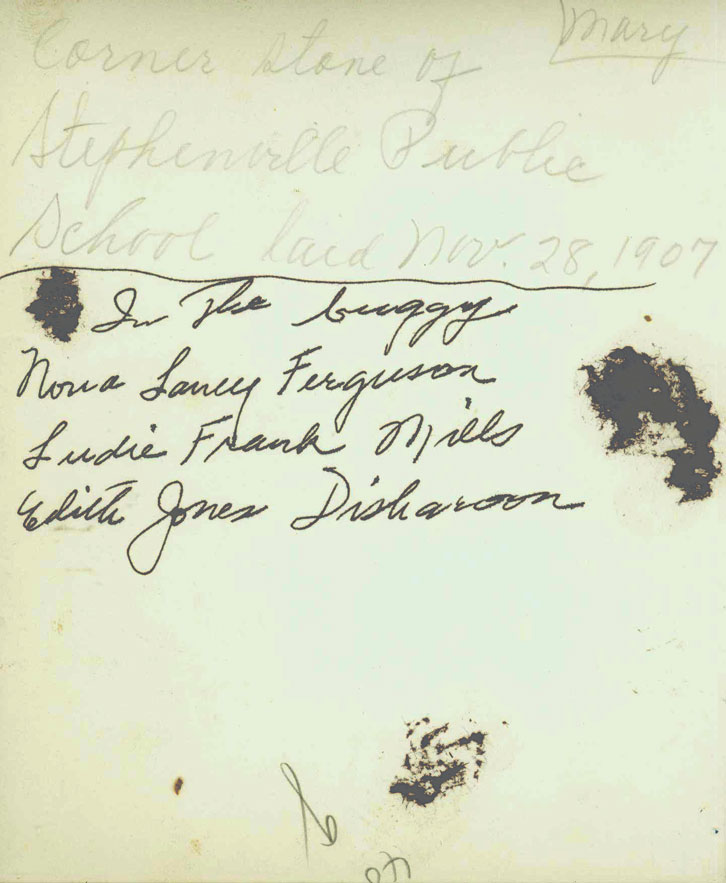 Mary
Corner stone of
Stephenville Public
School laid Nov. 28, 1907
In The buggy
Nona Laney Ferguson
Ludie Frank Mills
Edith Jones Disharoon